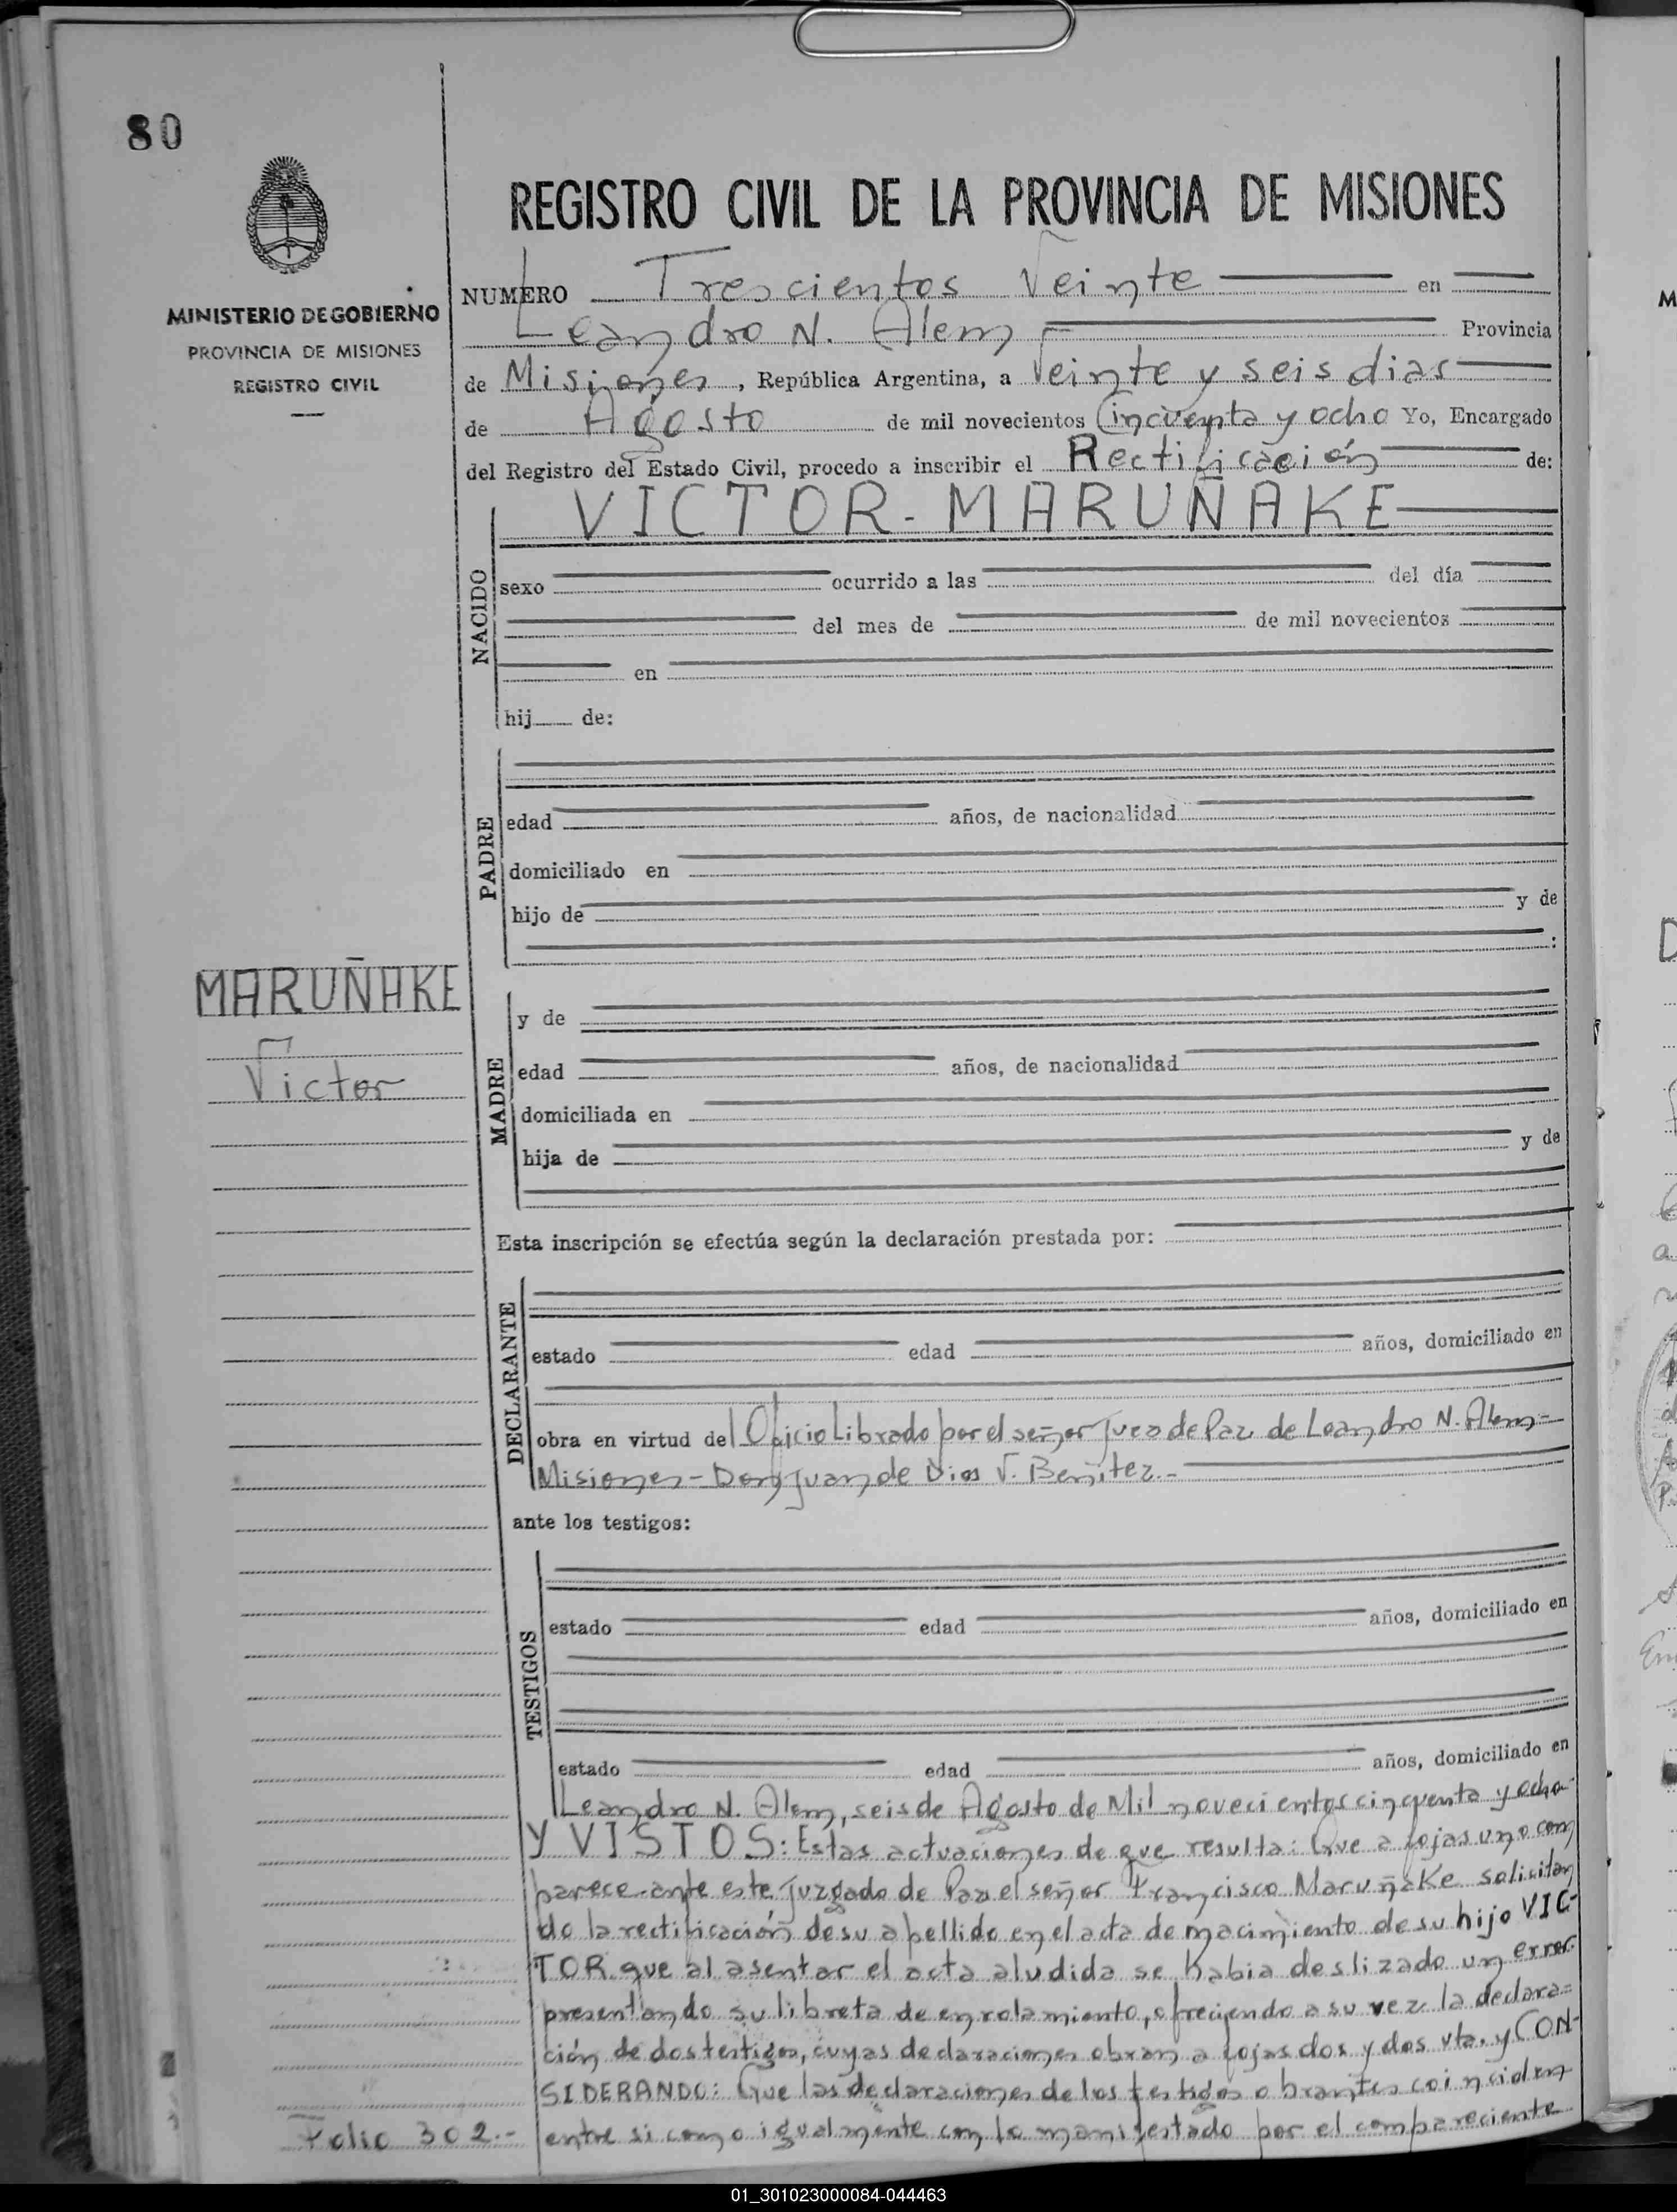 80
REGISTRO CIVIL DE LA PROVINCIA DE MISIONES
MINISTERIO DE GOBIERNO
PROVINCIA DE MISIONES
REGISTRO CIVIL
NUMERO Trescientos Veinte en
Leandro N. Alem Provincia
de Misiones, República Argentina, a Veinte y seis dias
de Agosto de mil novecientos Cincuenta y ocho Yo, Encargado
del Registro del Estado Civil, procedo a inscribir el Rectificación de:
VICTOR - MARUÑAKE
NACIDO
sexo ocurrido a las del día
del mes de de mil novecientos
en
hij de:
PADRE
edad años, de nacionalidad
domiciliado en
hijo de y de
:
MARUÑAKE
Victor
MADRE
y de
edad años, de nacionalidad
domiciliada en
hija de y de
Esta inscripción se efectúa según la declaración prestada por:
DECLARANTE
estado edad años, domiciliado en
obra en virtud del Oficio Librado por el señor Juez de Paz de Leandro N. Alem-
Misiones - Don Juan de Dios V. Benitez.-
ante los testigos:
TESTIGOS
estado edad años, domiciliado en
estado edad años, domiciliado en
Leandro N. Alem, seis de Agosto de Mil novecientos cinquenta y ocho-
Y VISTOS: Estas actuaciones de que resulta: Que a fojas uno com
parece ante este Juzgado de Paz el señor Francisco Maruñake solicitan
do la rectificación de su apellido en el acta de nacimiento de su hijo VIC-
TOR que al asentar el acta aludida se habia deslizado un error
presentando su libreta de enrolamiento, ofreciendo a su vez la declara=
ción de dos testigos, cuyas declaraciones obran a fojas dos y dos vta. y CON-
SIDERANDO: Que las declaraciones de los testigos obrantes coinciden
entre si como igualmente con lo manifestado por el compareciente
Folio 302.-
01_301023000084-044463